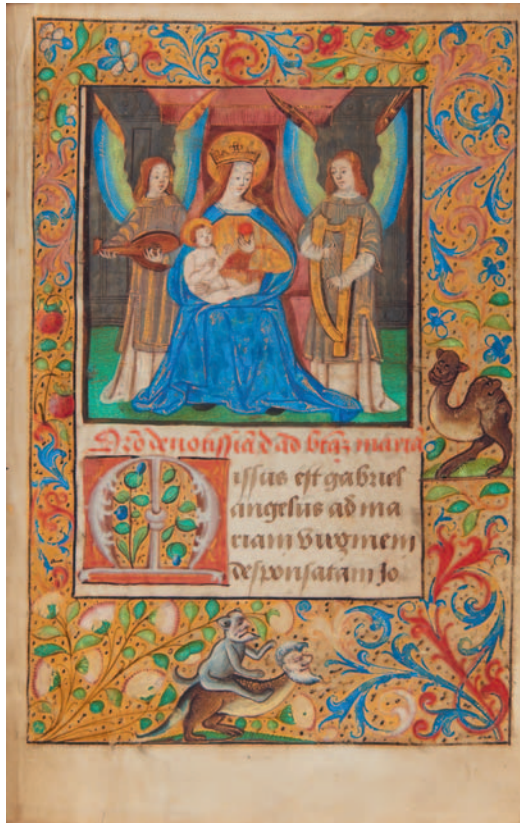 Or̃o deuotissĩa ad btãʒ mariã
Missus est gabriel
angelus ad ma
riam virginem
desponsatam Jo